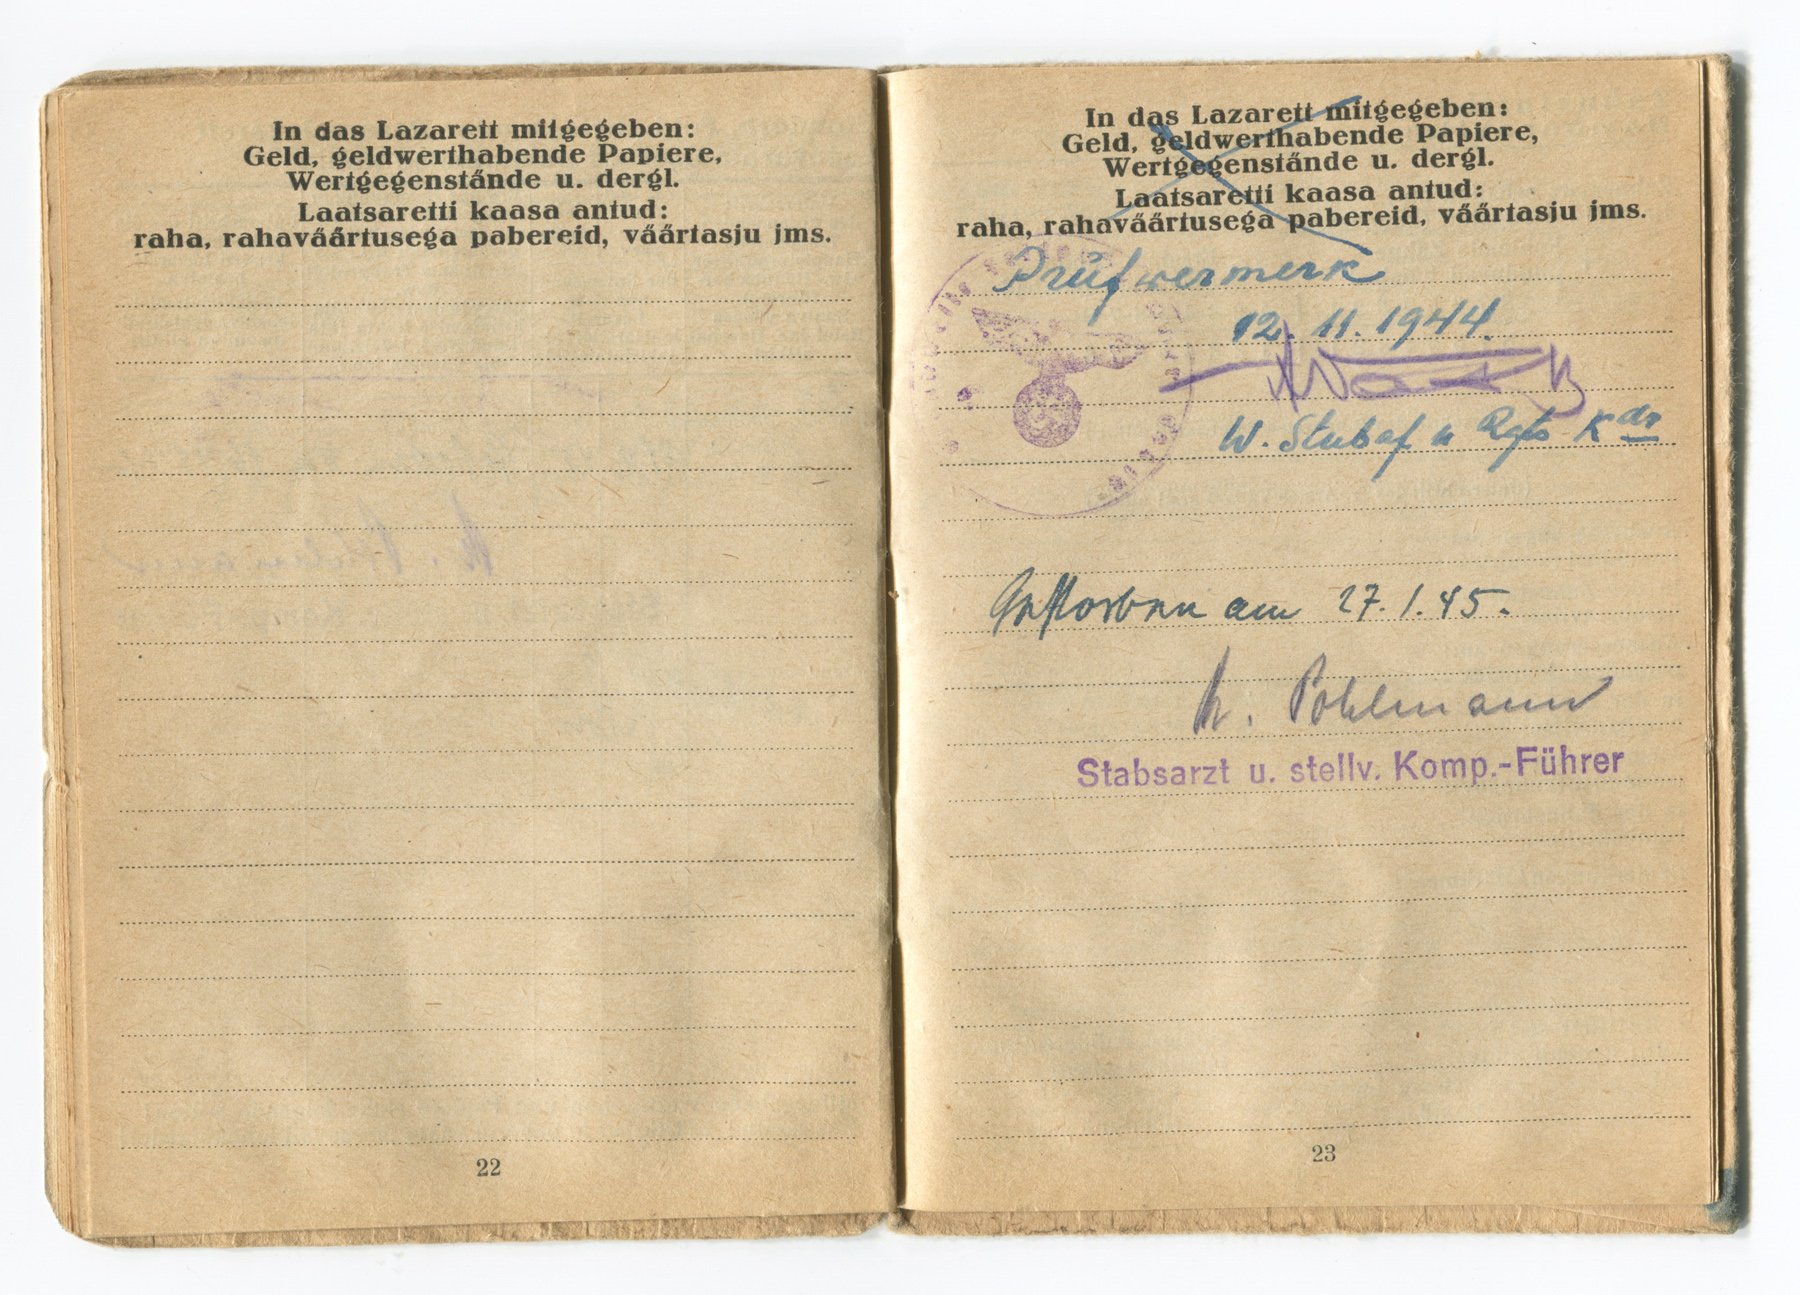 In das Lazarett mitgegeben:
Geld, geldwerthabende Papiere,
Wertgegenstände u. dergl.
Laatsaretti kaasa antud:
raha, rahaväärtusega pabereid, väärtasju jms.
22
In das Lazarett mitgegeben:
Geld, geldwerthabende Papiere,
Wertgegenstände u. dergl.
Laatsaretti kaasa antud:
raha, rahaväärtusega pabereid, väärtasju jms.
Prüfvermerk
12. 11. 1944.
W. Stubaf u Rgts Kdr
Gestorben am 27.1.45.
Pohlmann
Stabsarzt u. stellv. Komp.-Führer
23